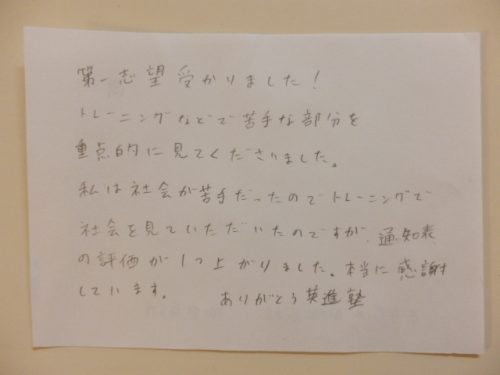 第一志望受かりました！
トレーニングなどで苦手な部分を
重点的に見てくださいました。
私は社会が苦手だったのでトレーニングで
社会を見ていただいたのですが、通知表
の評価が1つ上がりました。本当に感謝
しています。　ありがとう英進塾